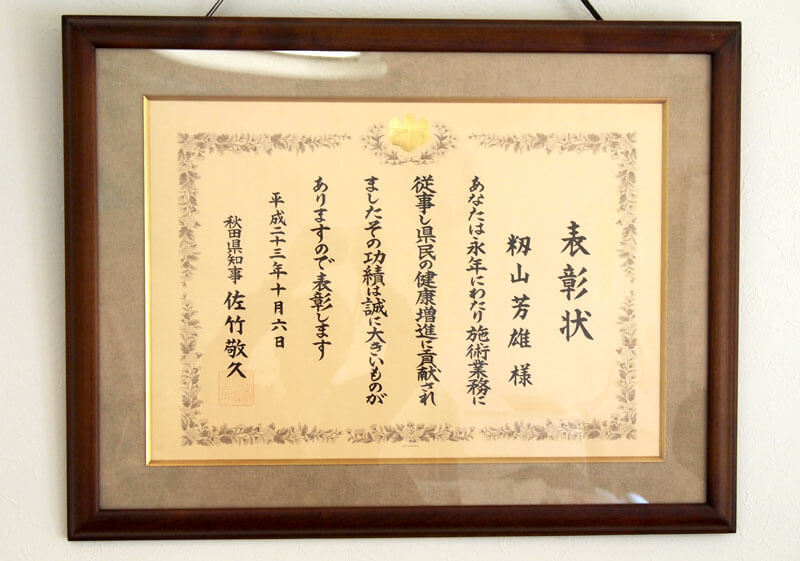 表彰状
籾山芳雄 様
あなたは永年にわたり施術業務に
従事し県民の健康増進に貢献され
ましたその功績は誠に大きいものが
ありますので表彰します
平成二十三年十月六日
秋田県知事 佐竹敬久